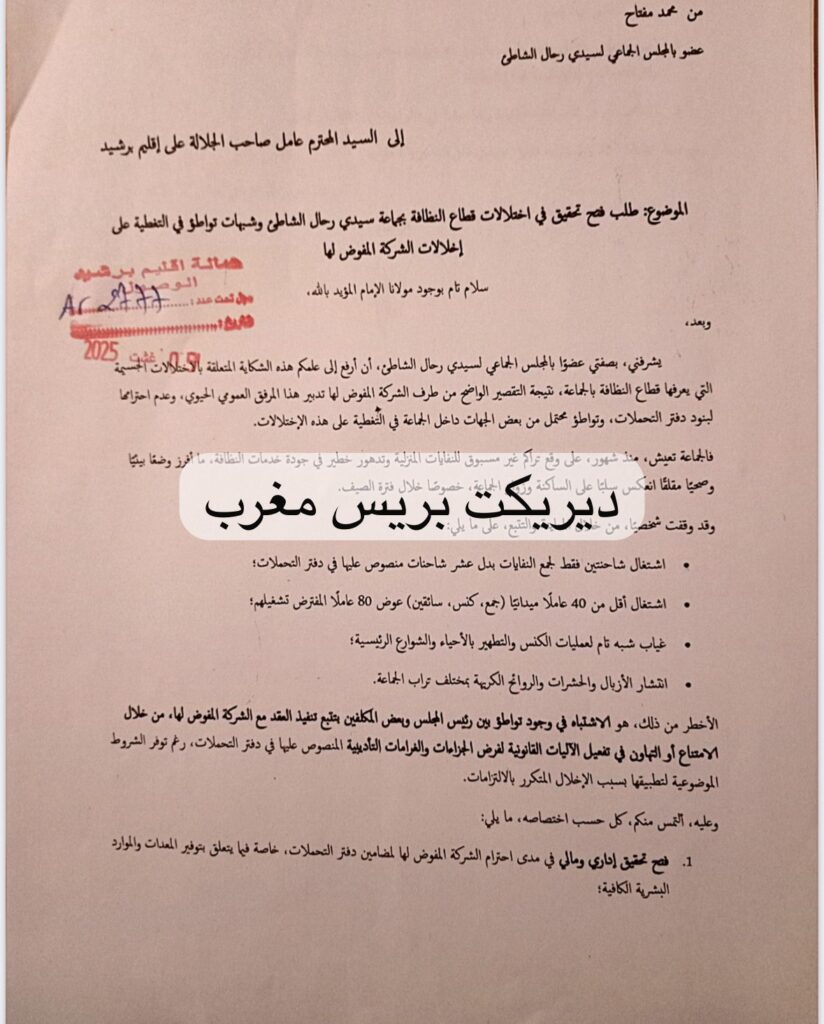 من محمد مفتاح
عضو بالمجلس الجماعي لسيدي رحال الشاطئ
إلى السيد المحترم عامل صاحب الجلالة على إقليم برشيد
الموضوع: طلب فتح تحقيق في اختلالات قطاع النظافة بجماعة سيدي رحال الشاطئ وشبهات تواطؤ في التغطية على
إخلالات الشركة المفوض لها
عمالة اقليم برشيد
سجل تحت عدد:
Ar 2777
2025
سلام تام بوجود مولانا الإمام المؤيد بالله،
وبعد،
يشرفني، بصفتي عضوًا بالمجلس الجماعي لسيدي رحال الشاطئ، أن أرفع إلى علمكم هذه الشكاية المتعلقة بالاختلالات الجسيمة
التي يعرفها قطاع النظافة بالجماعة، نتيجة التقصير الواضح من طرف الشركة المفوض لها تدبير هذا المرفق العمومي الحيوي، وعدم احترامها
لبنود دفتر التحملات، وتواطؤ محتمل من بعض الجهات داخل الجماعة في التغطية على هذه الإختلالات.
فالجماعة تعيش، منذ شهور، على وقع تراكم غير مسبوق للنفايات المنزلية وتدهور خطير في جودة خدمات النظافة، ما أفرز وضعًا بيئيًا
وصحيًا مقلقًا انعكس سلبًا على الساكنة وزوار الجماعة، خصوصًا خلال فترة الصيف.
ديريكت بريس مغرب
وقد وقفت شخصيًا، من خلال والتتبع، على ما يلي:
• اشتغال شاحنتين فقط لجمع النفايات بدل عشر شاحنات منصوص عليها في دفتر التحملات؛
• اشتغال أقل من 40 عاملًا ميدانيًا (جمع، كنس، سائقين) عوض 80 عاملًا المفترض تشغيلهم؛
• غياب شبه تام لعمليات الكنس والتطهير بالأحياء والشوارع الرئيسية؛
• انتشار الأزبال والحشرات والروائح الكريهة بمختلف تراب الجماعة.
الأخطر من ذلك، هو الاشتباه في وجود تواطؤ بين رئيس المجلس وبعض المكلفين بتتبع تنفيذ العقد مع الشركة المفوض لها، من خلال
الامتناع أو التهاون في تفعيل الآليات القانونية لفرض الجزاءات والغرامات التأديبية المنصوص عليها في دفتر التحملات، رغم توفر الشروط
الموضوعية لتطبيقها بسبب الإخلال المتكرر بالالتزامات.
وعليه، ألتمس منكم، كل حسب اختصاصه، ما يلي:
1. فتح تحقيق إداري ومالي في مدى احترام الشركة المفوض لها لمضامين دفتر التحملات، خاصة فيما يتعلق بتوفير المعدات والموارد
البشرية الكافية؛